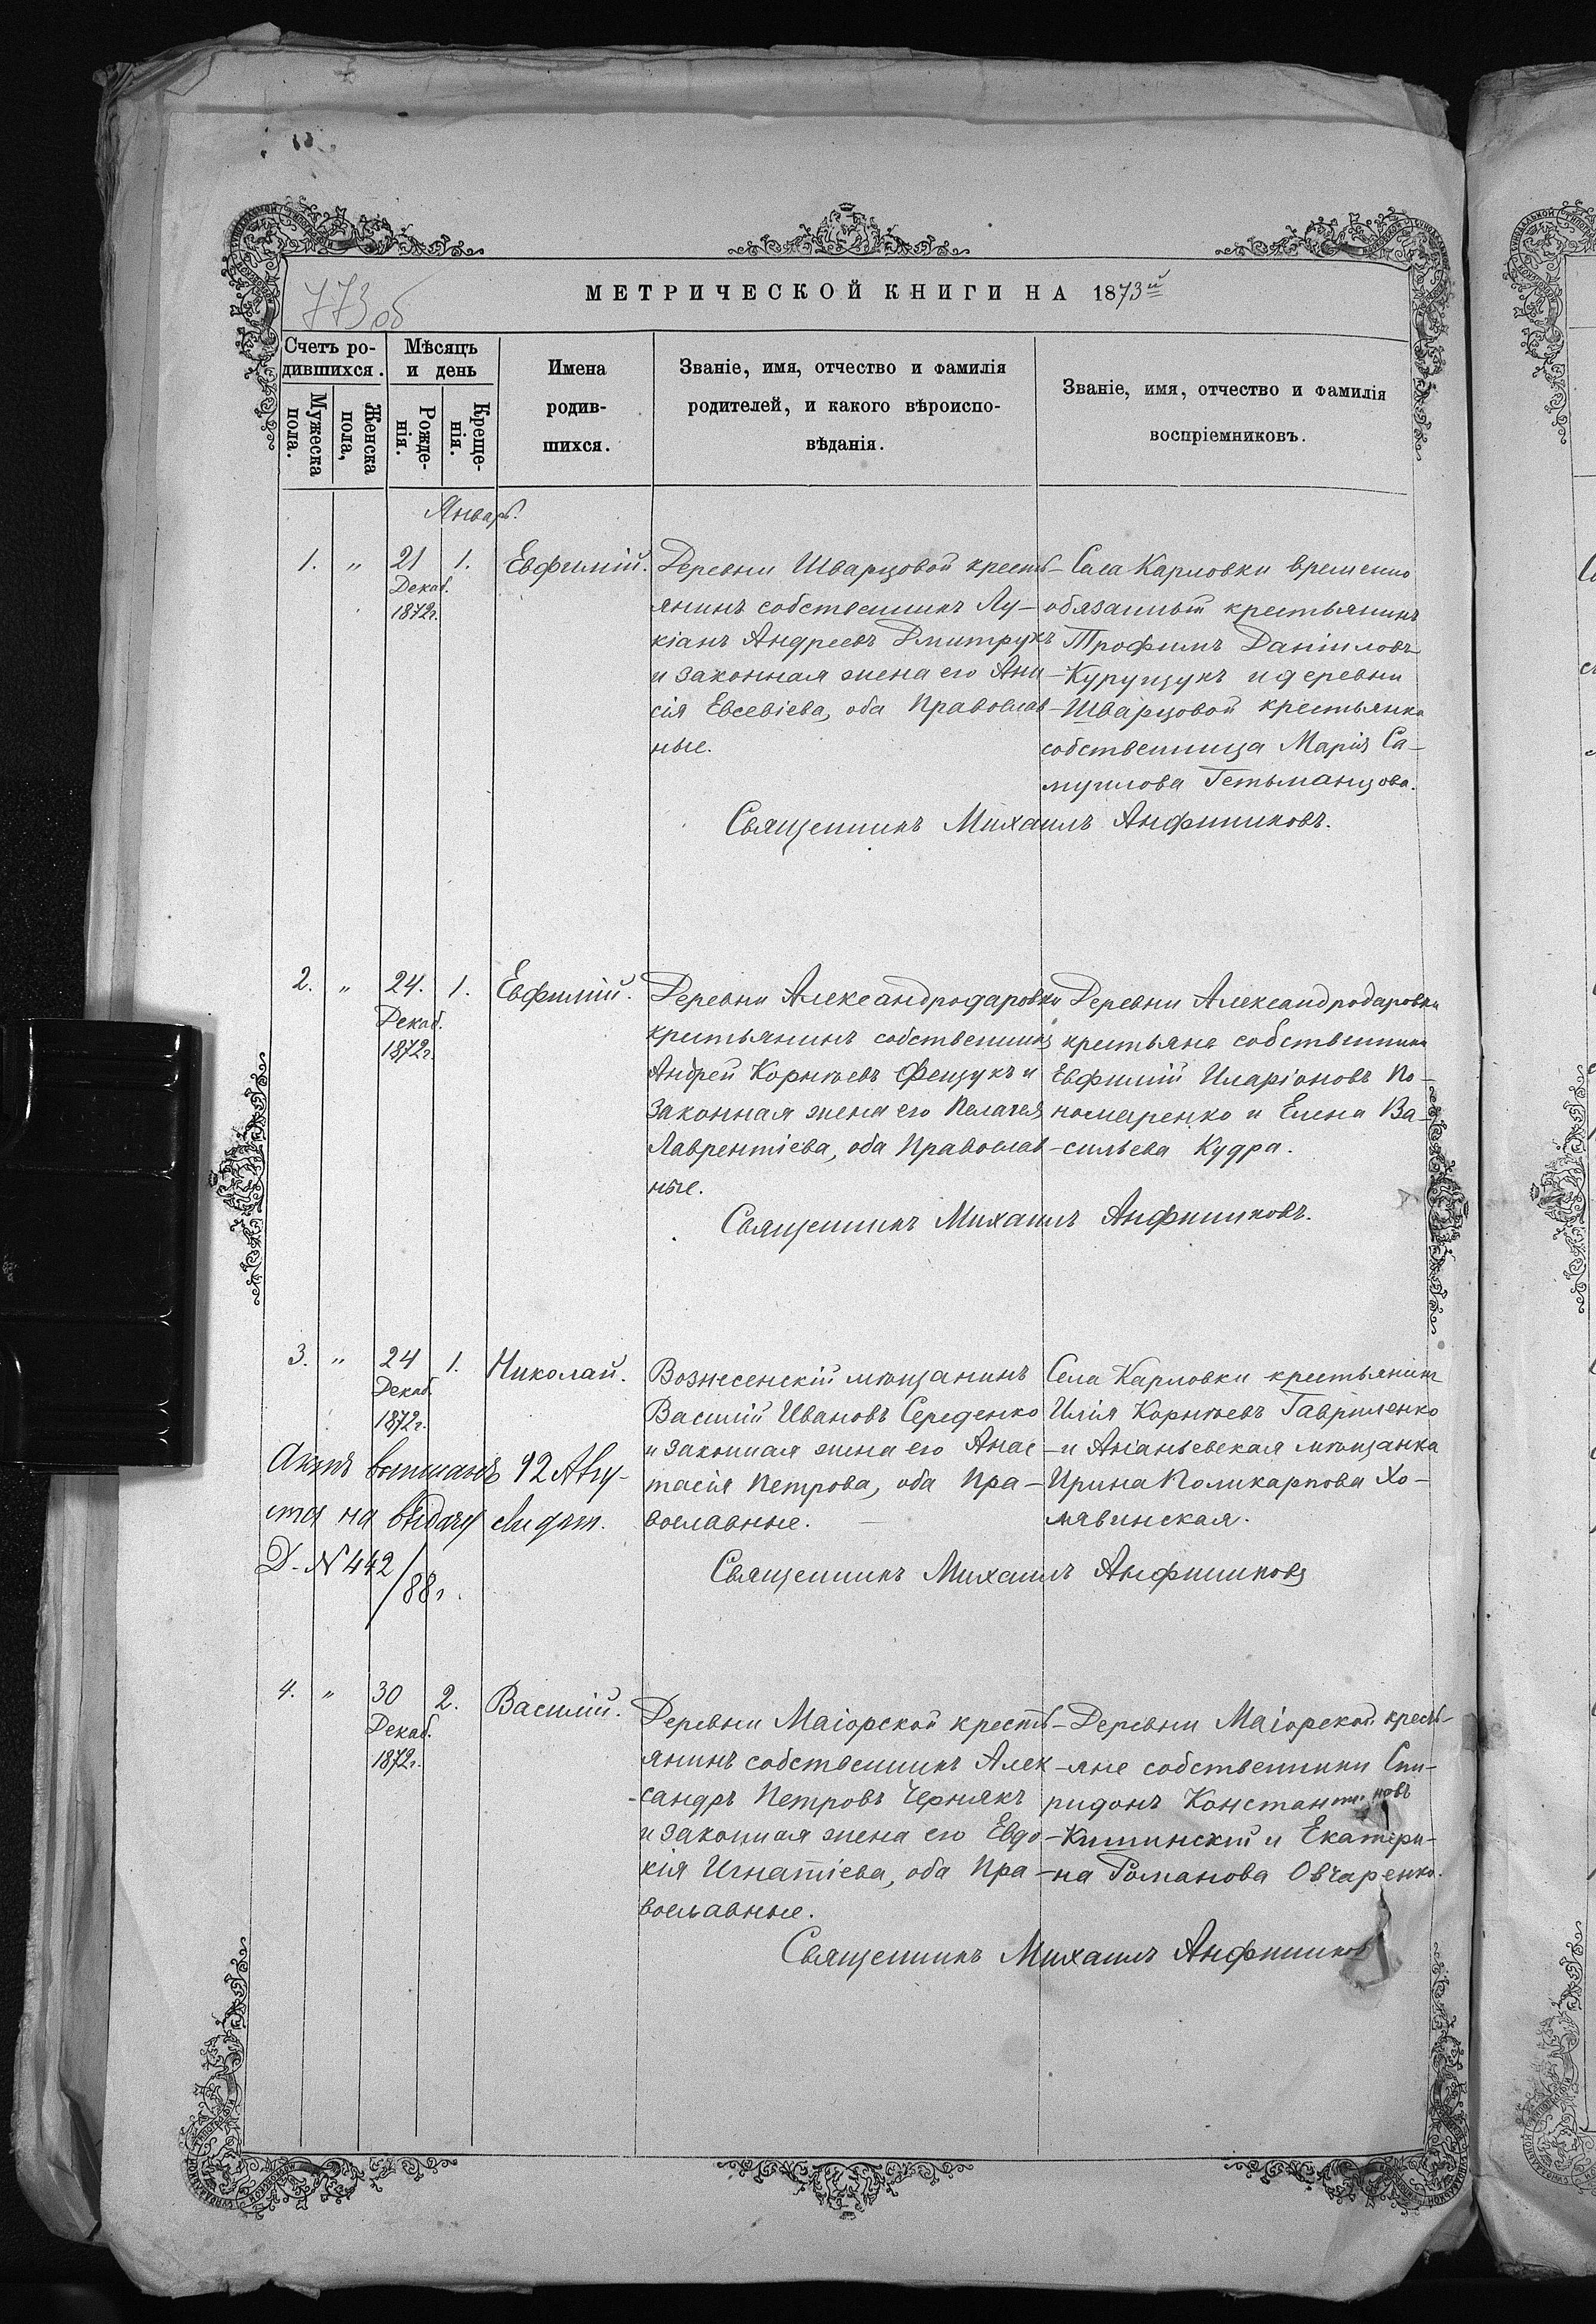 773 об
МЕТРИЧЕСКОЙ КНИГИ НА 1873й
Счетъ ро-
дившихся.
Мужеска
пола.
Женска
пола,
Мѣсяцъ
и день
Рожде-
нія.
Креще-
нія.
Имена
родив-
шихся.
Званіе, имя, отчество и фамилія
родителей, и какого вѣроиспо-
вѣданія.
Званіе, имя, отчество и фамилія
воспріемниковъ.
Январь.
1. " 21 1. Евфимій.
Декаб.
1872г.
Деревни Шварцовой кресть-
янинъ собственникъ Лу-
кіанъ Андреевъ Дмитрукъ
и законная жена его Ани-
сія Евсевіева, оба Православ-
ные.
Села Карловки временно
обязанный крестьянинъ
Трофимъ Даніиловъ
Курущукъ и деревни
Шварцовой крестьянка
собственница Марія Са-
муилова Гетьманцова.
Священникъ Михаилъ Анфиниковъ.
2. " 24. 1. Евфимій.
Декаб.
1872г.
Деревни Александродаровки
крестьянинъ собственникъ
Андрей Корнѣевъ Фещукъ и
законная жена его Пелагея
Лаврентіева, оба Православ-
ные.
Деревни Александродаровки
крестьяне собственники
Евфимій Иларіоновъ По-
номаренко и Елена Ва-
сильева Кудра.
Священникъ Михаилъ Анфиниковъ.
3. " 24 1. Николай.
Декаб.
1872г.
Вознесенскій мѣщанинъ
Василій Ивановъ Середенко
и законная жена его Анас-
тасія Петрова, оба Пра-
вославные.
Села Карловки крестьянинъ
Илія Корнѣевъ Гавриленко
и Ананьевская мѣщанка
Ирина Поликарпова Хо-
мявинская.
Актъ выписанъ 12 Авгу-
ста на выдачу свидѣт.
Д. N 442/88г.
Священникъ Михаилъ Анфиниковъ
4. " 30 2. Василій.
Декаб.
1872г.
Деревни Маіорской кресть-
янинъ собственникъ Алек-
сандръ Петровъ Чернякъ
и законная жена его Евдо-
кія Игнатіева, оба Пра-
вославные.
Деревни Маіорской кресть-
яне собственники Спи-
ридонъ Константиновъ
Кишинскій и Екатери-
на Романова Овчаренко.
Священникъ Михаилъ Анфиников